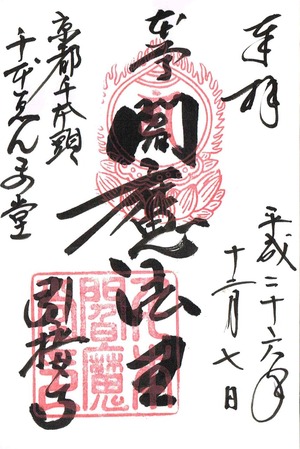 奉拝
平成二十六年
十二月七日
本尊
閻魔法王
引接寺
京都千本頭
千本ゑんま堂